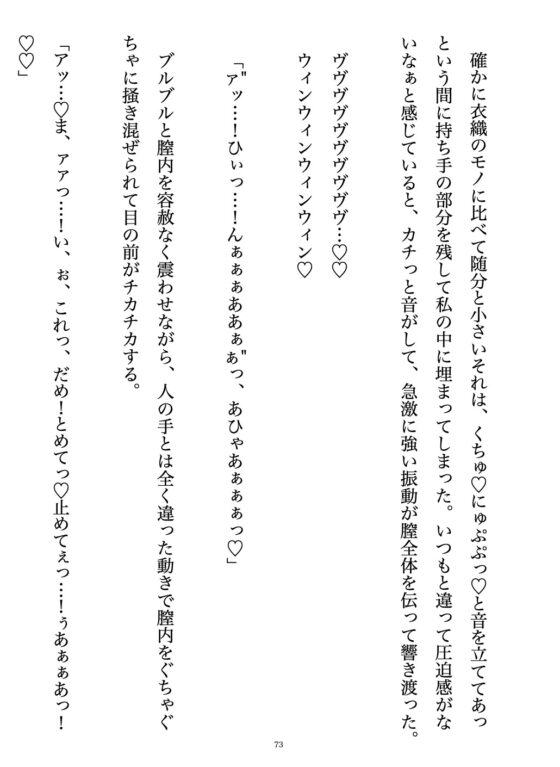 確かに衣織のモノに比べて随分と小さいそれは、くちゅ♡にゅぷぷっ♡と音を立ててあっ
という間に持ち手の部分を残して私の中に埋まってしまった。いつもと違って圧迫感がな
いなぁと感じていると、カチっと音がして、急激に強い振動が膣全体を伝って響き渡った。
ヴヴヴヴヴヴヴヴヴ…♡♡
ウィンウィンウィンウィン♡
「ア"ッ…！ひぃっ…！んぁぁぁああぁぁ"っ、あひゃあぁぁぁっ♡」
ブルブルと膣内を容赦なく震わせながら、人の手とは全く違った動きで膣内をぐちゃぐ
ちゃに掻き混ぜられて目の前がチカチカする。
「アッ…♡ま、ァァっ…！い、ぉ、これっ、だめ！とめてっ♡止めてぇっ…！ぅあぁぁあっ！
♡♡」
73